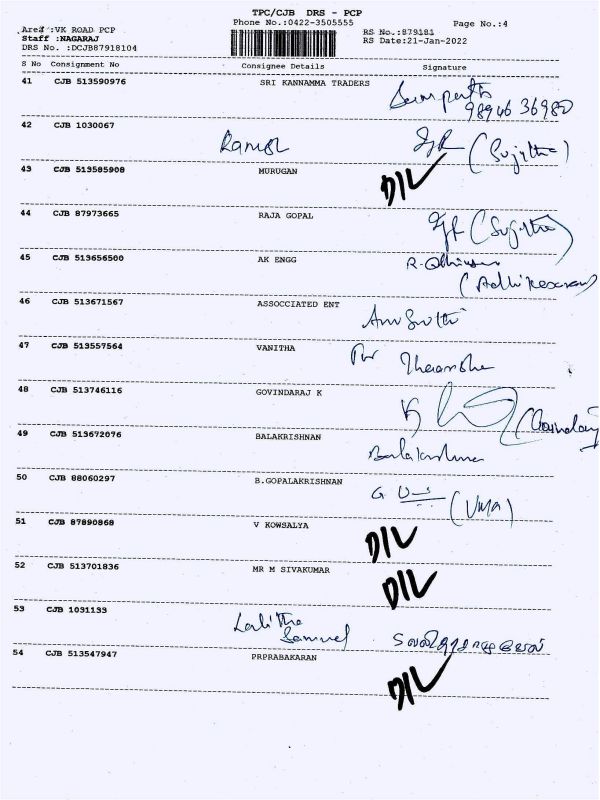 TPC/CJB DRS - PCP
Phone No.:0422-3505555
Page No.:4
Area :VK ROAD PCP
Staff :NAGARAJ
DRS No. :DCJB87918104
RS No.:879181
RS Date:21-Jan-2022
S No Consignment No Consignee Details Signature
41 CJB 513590976 SRI KANNAMMA TRADERS
98946 36980
42 CJB 1030067 Ramesh (Sujitha)
43 CJB 513585908 MURUGAN D/L
44 CJB 87973665 RAJA GOPAL (Sujitha)
45 CJB 513656500 AK ENGG
(Adhikesavan)
46 CJB 513671567 ASSOCCIATED ENT
47 CJB 513557564 VANITHA
48 CJB 513746116 GOVINDARAJ K
49 CJB 513672076 BALAKRISHNAN Balakrishna
50 CJB 88060297 B.GOPALAKRISHNAN (UMA)
51 CJB 87890868 V KOWSALYA D/L
52 CJB 513701836 MR M SIVAKUMAR D/L
53 CJB 1031133 Lalitha
Samuel
54 CJB 513547947 PRPRABAKARAN D/L